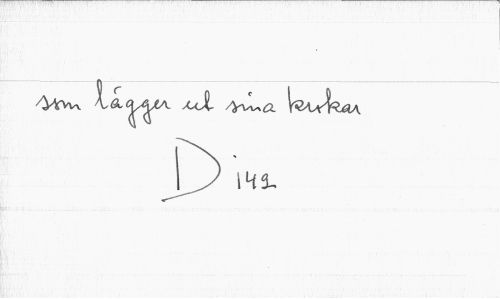 som lägger ut sina krokar
D 142